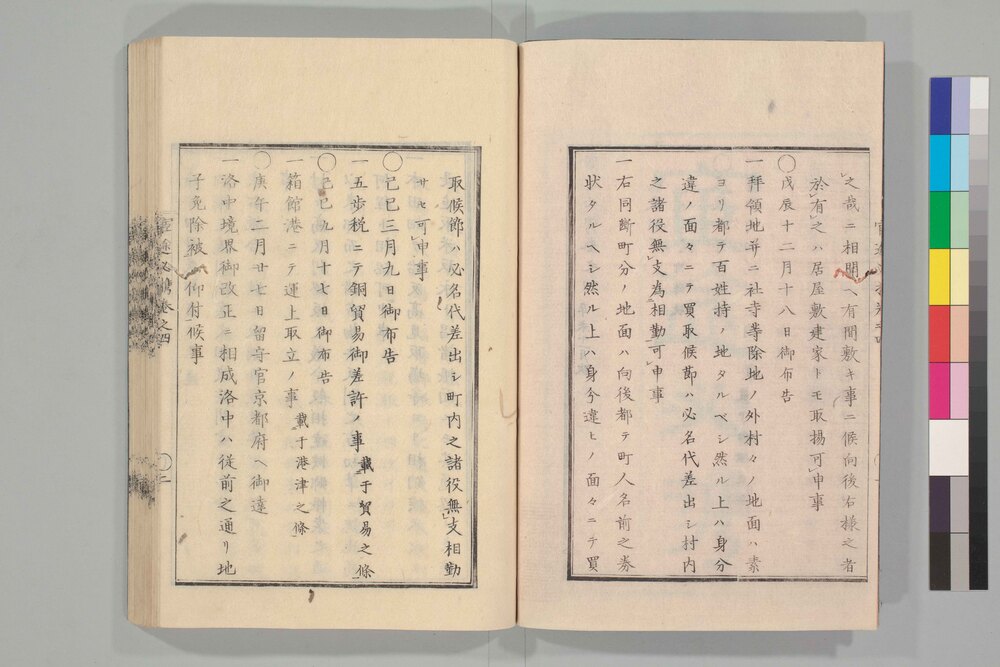 之哉ニ相聞ヘ有間敷キ事ニ候向後右様之者
於有之ハ居屋敷建家トモ取揚可申事
〇戊辰十二月十八日御布告
一拜領地并ニ社寺等除地ノ外村々ノ地面ハ素
ヨリ都テ百姓持ノ地タルベシ然ル上ハ身分
違ノ面々ニテ買取候節ハ必名代差出シ村内
之諸役無支為相勤可申事
一右同斷町分ノ地面ハ向後都テ町人名前之券
状タルヘシ然ル上ハ身今違ヒノ面々ニテ買
取候節ハ必名代差出シ町内之諸役無支相勤
サセ可申事
〇己巳三月九日御布告
一五歩税ニテ銅貿易御差許ノ事 載于貿易之條
〇己巳九月十七日御布告
一箱館港ニテ運上取立ノ事 載于港津之條
〇庚午二月廿七日留守官京都府ヘ御達
一洛中境界御改正ニ相成洛中ハ従前之通リ地
子免除被仰付候事
官途必攜巻之四
〇二